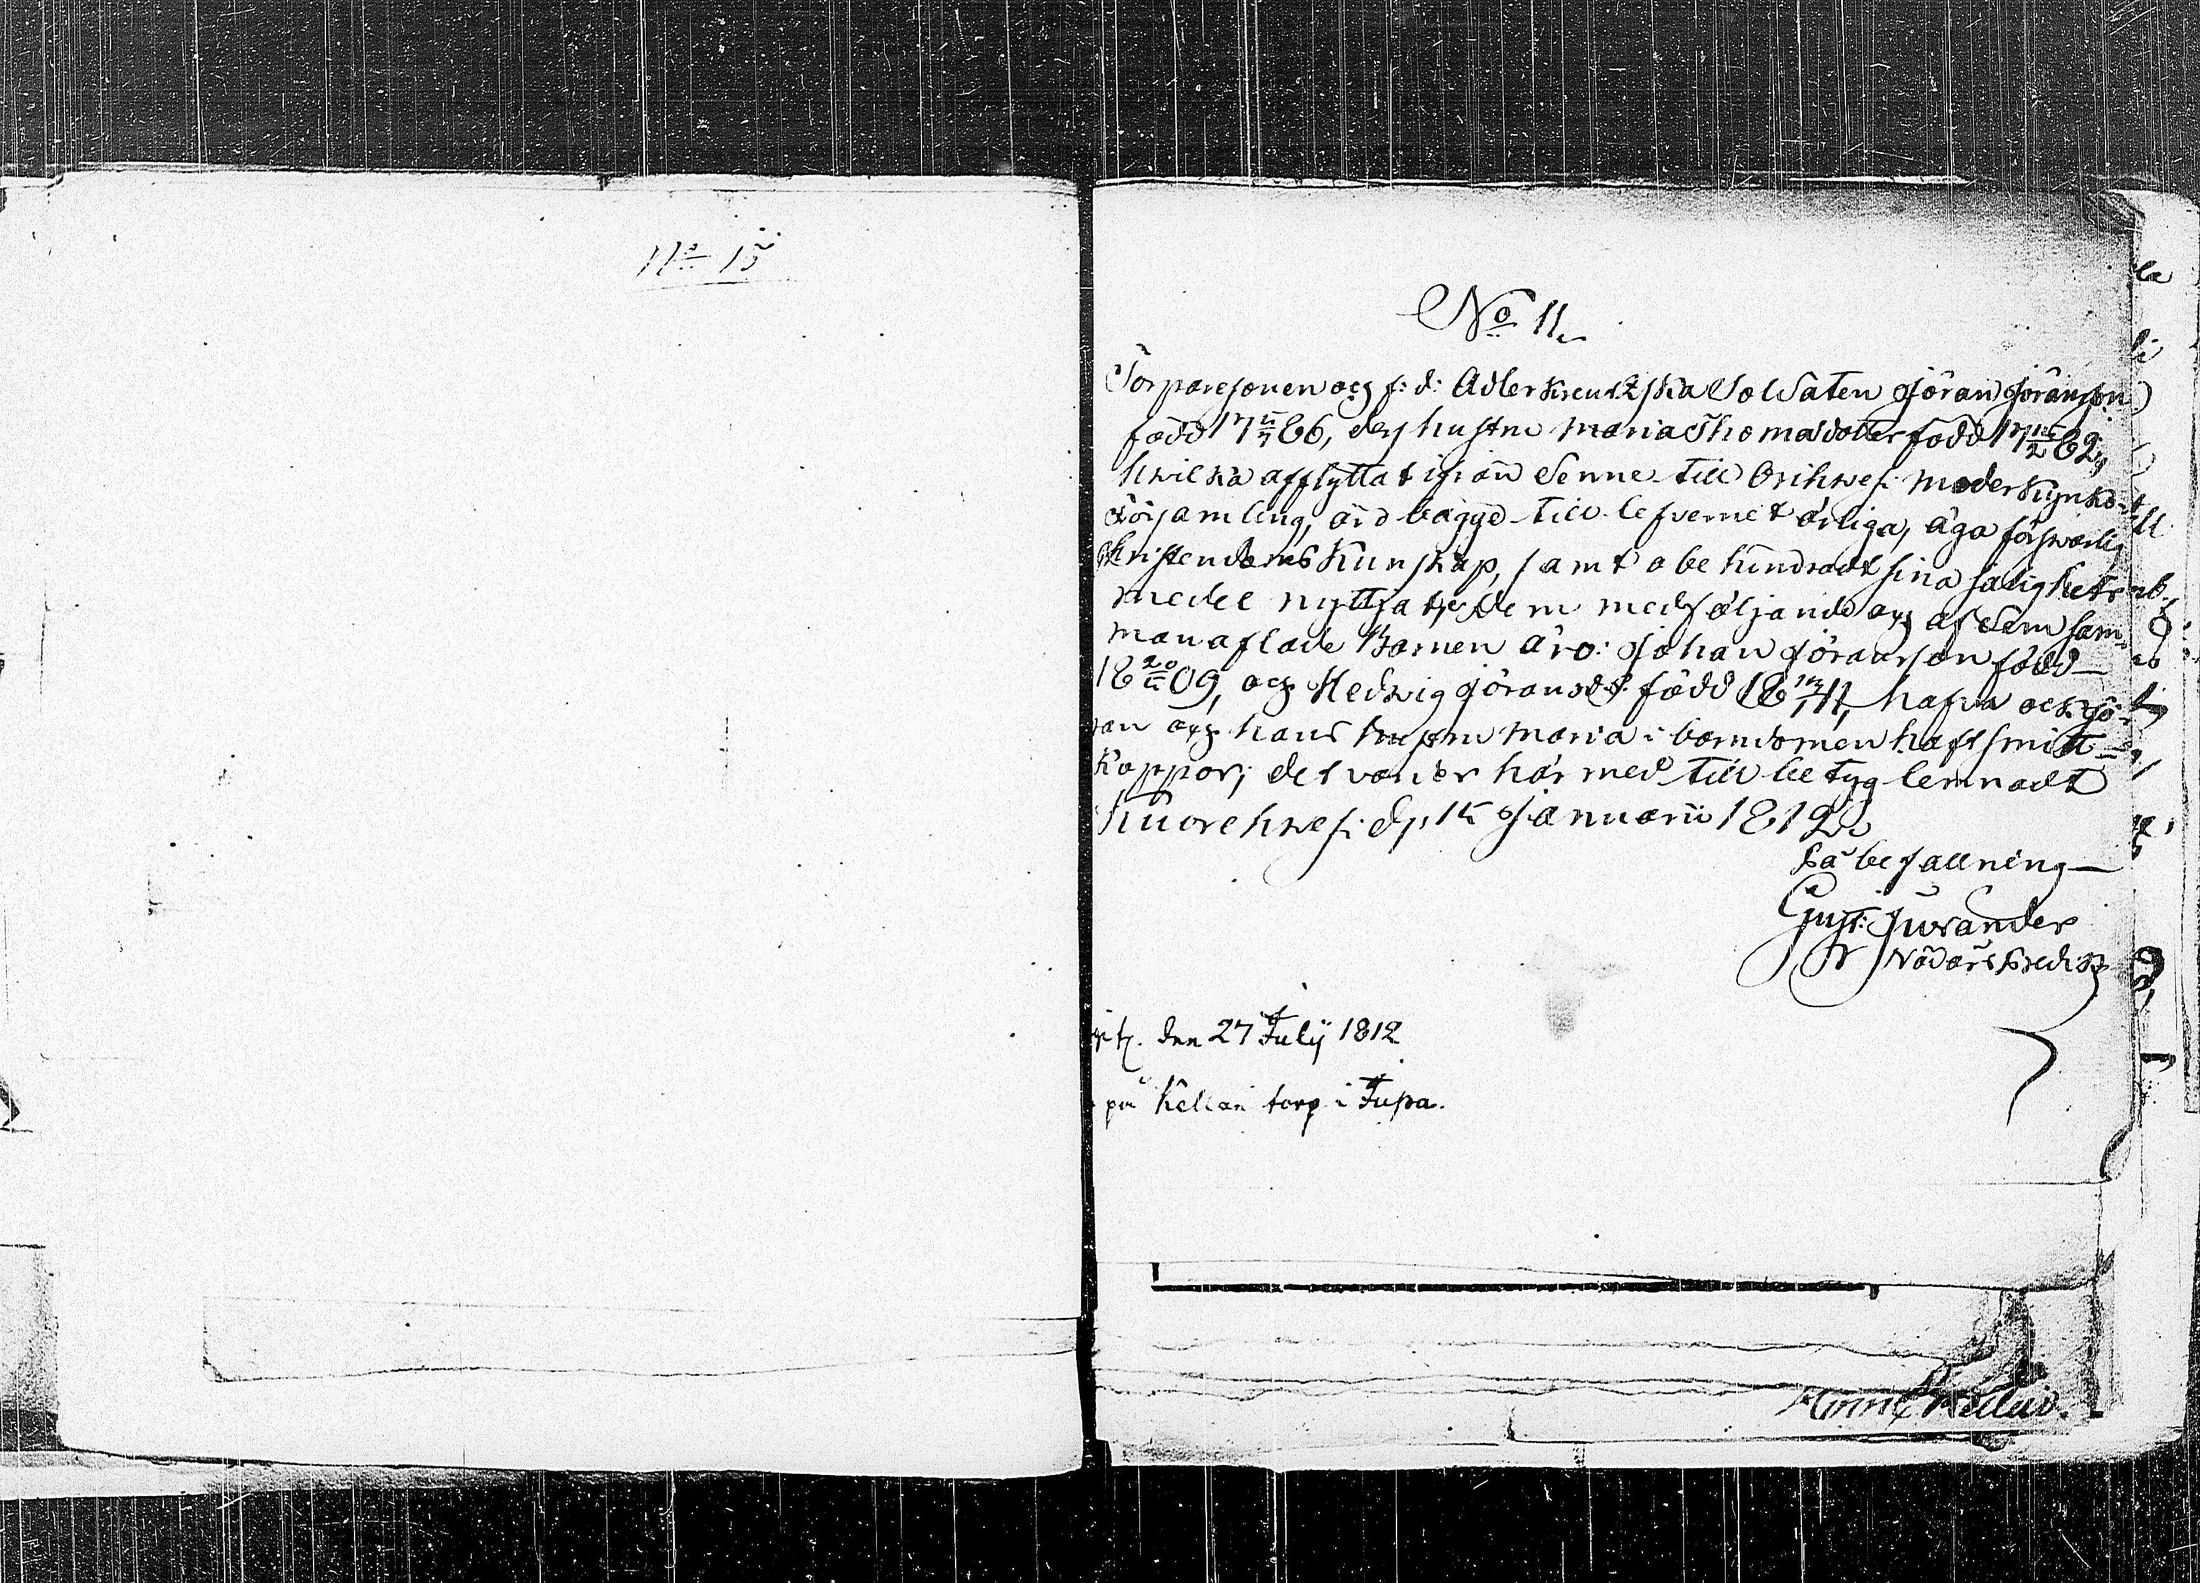 No 11.
Torparesonen och f: d: Adlerkreutzska Soldaten Jöran Jöransson
född 17 86, dess hustru Maria Thomasdotter född 17 82,
hvilka afflyttat ifrån denne till Orihvesi moderkyrko
Församling, äro bägge till lefvernet ärliga, äga försvarlig
Christendoms Kunskap, samt obehindradt sina salighets
medel nyttjat; dem medföljande och af dem sam-
man aflade Barnen äro: Johan Göransson född
18 20 09, och Hedvig Göransd:r född 18 11, hafva ock Jö-
ran och hans hustru Maria i barndomen haft smitt
Koppor; det varder här med till betyg lemnadt
Kuorehvesi d. Januarii 1812.
På befallning
Gust: Juvander
Nådårs Predik:
den 27 Julij 1812
på torp i Jupa.